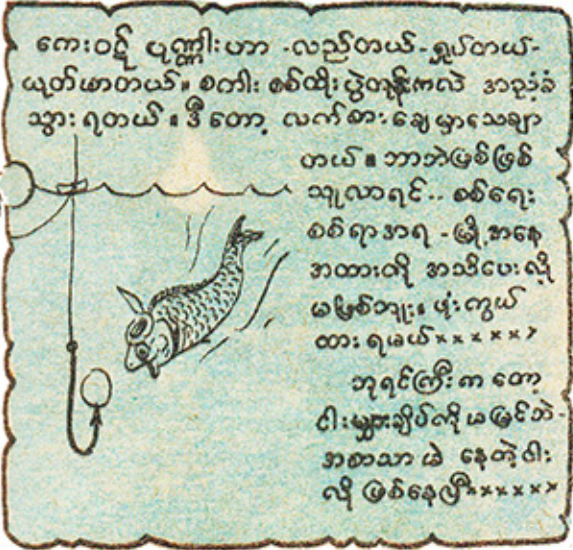 ကေးဝဋ် ပုဏ္ဏါးဟာ -လည်တယ်-ရှုပ်တယ်-
ယုတ်မာတယ်။ စကါး စစ်ထိုးပွဲတုန်းကလဲ အညံ့ခံ
သွားရတယ်။ ဒီတော့ လက်စားချေမှာသေချာ
တယ်။ ဘာဘဲဖြစ်ဖြစ်
သူလာရင်.. စစ်ရေး
စစ်ရာအရ -မြို့အနေ
အထားကို အသိပေးလို့
မဖြစ်ဘူး။ ဖုံးကွယ်
ထားရမယ်××××××
ဘုရင်ကြီးက တော့
ငါးမျှားချိပ်ကိုမမြင်ဘဲ-
အစာသာမဲ နေတဲ့ငါး
လို ဖြစ်နေပြီ××××××